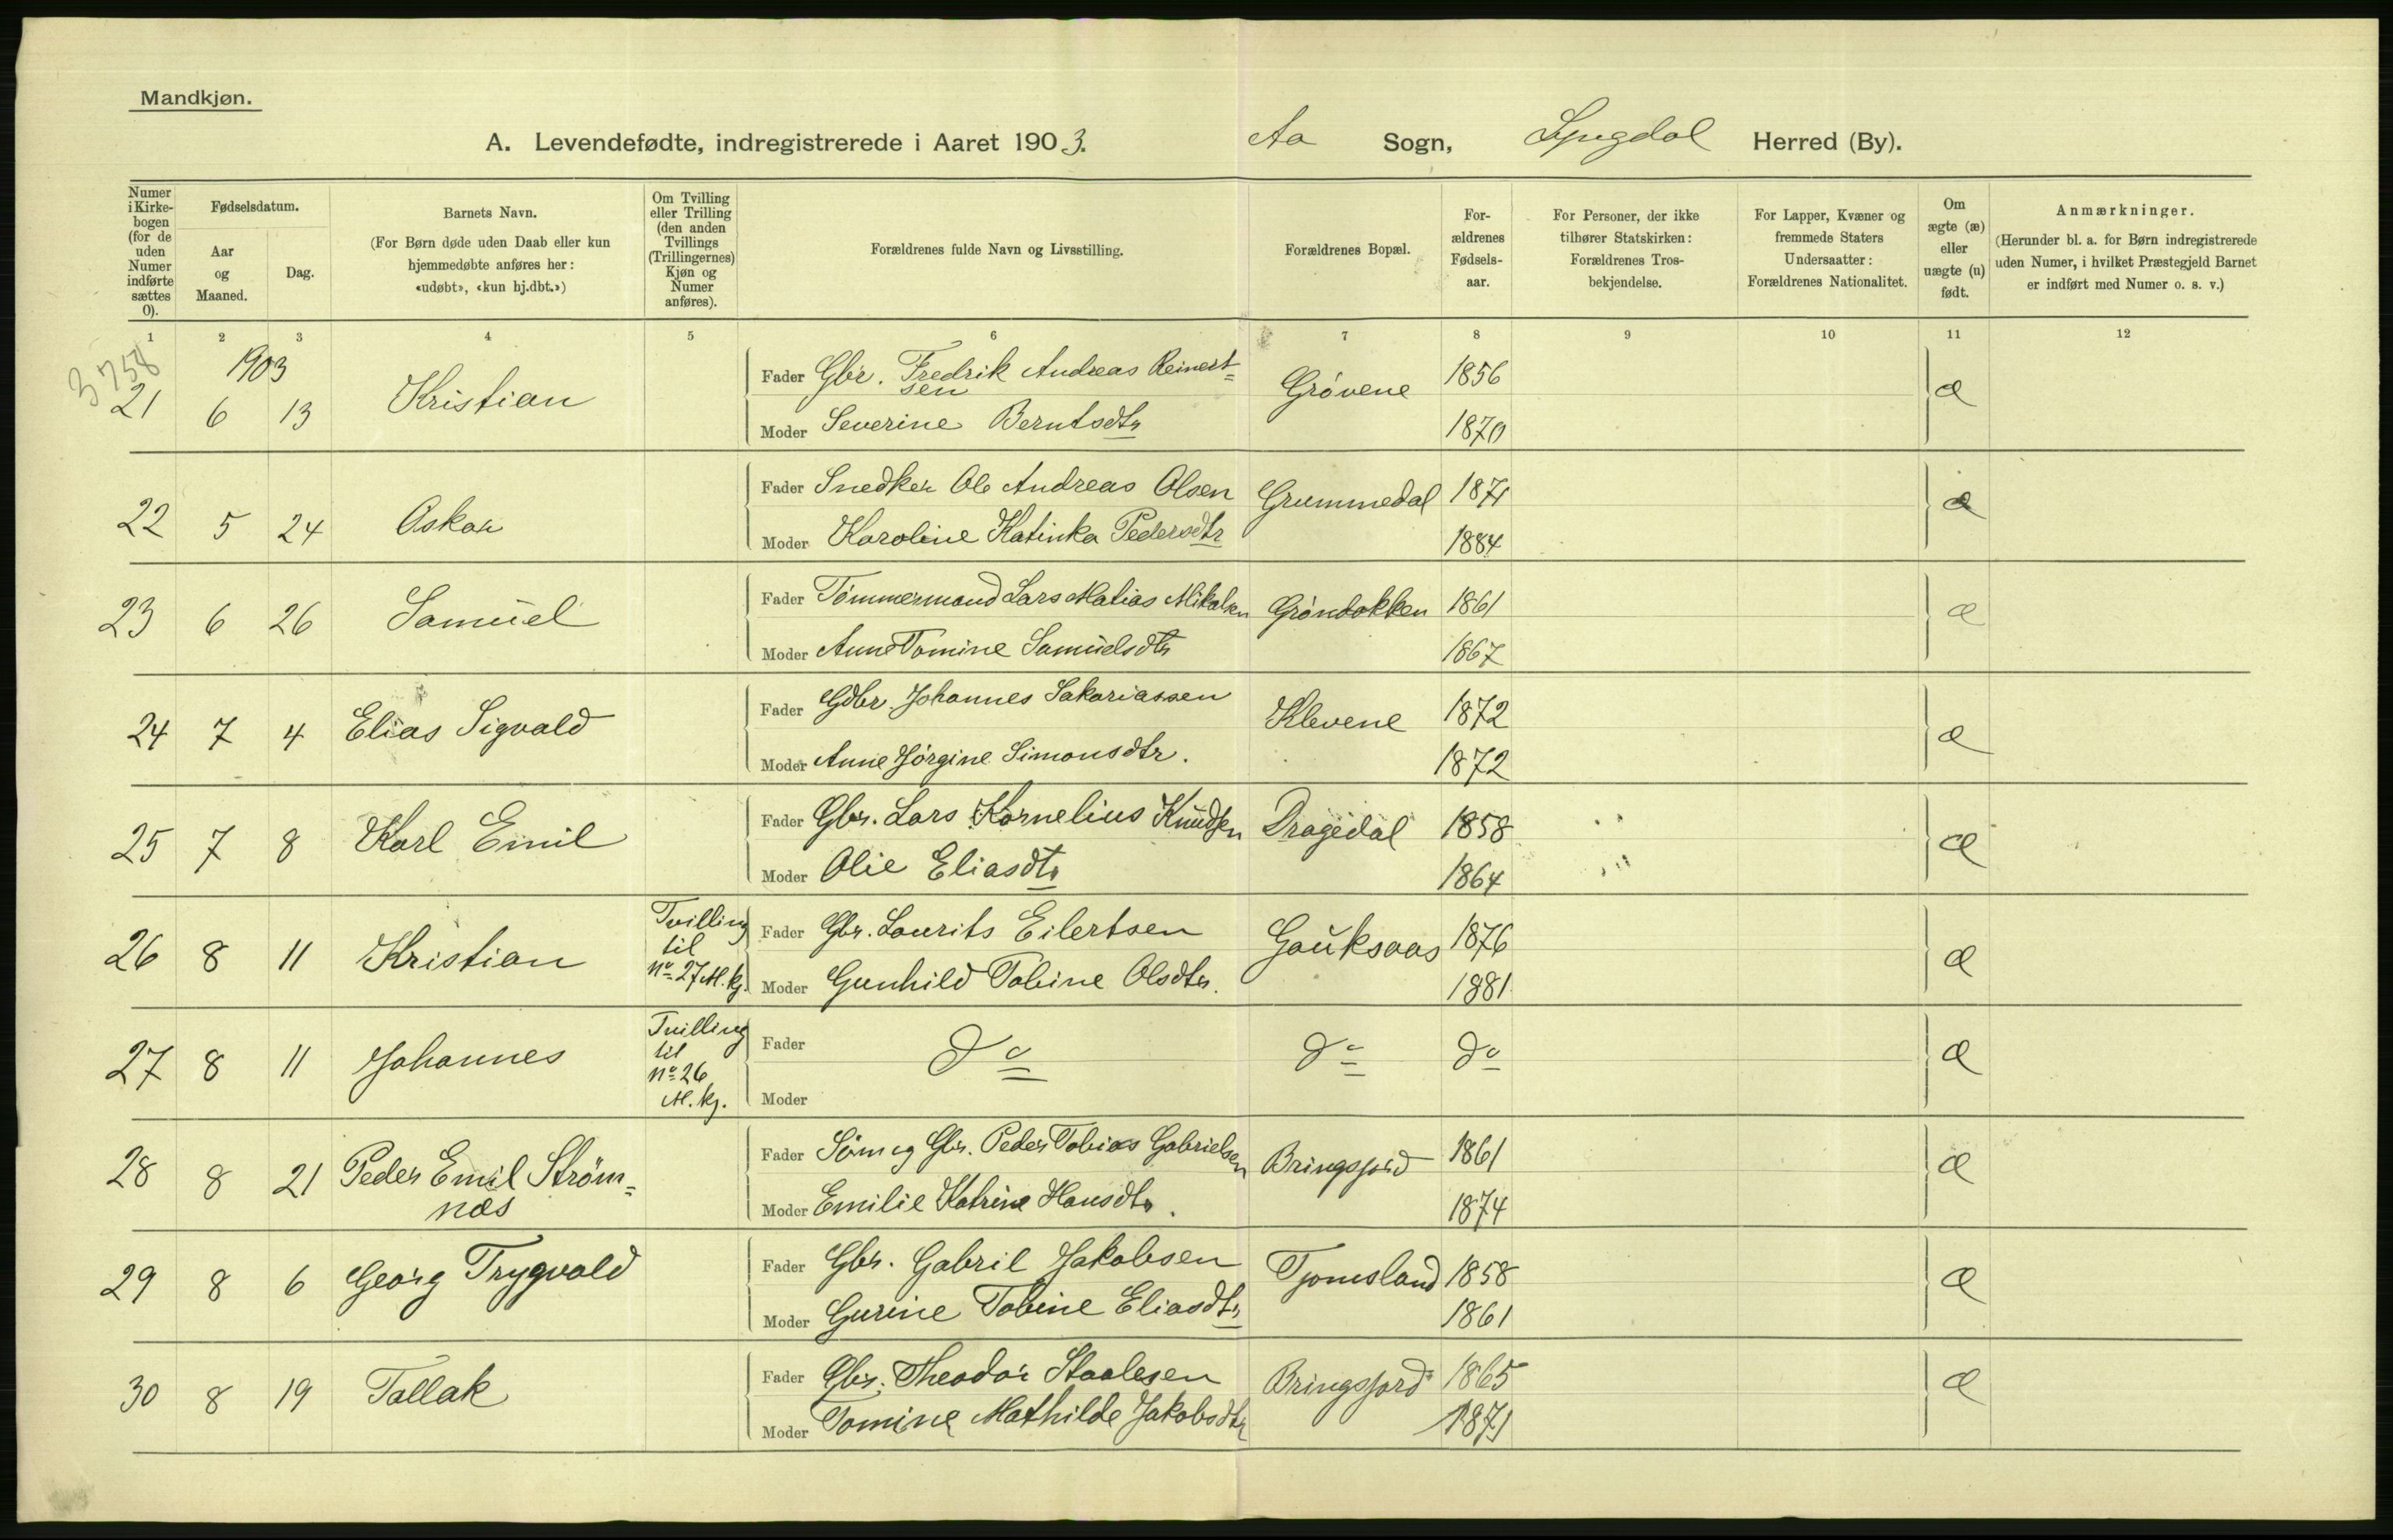 Mandkjøn.
A. Levendefødte, indregistrerede i Aaret 1903. Aa Sogn, Lyngdal Herred (By).
Numer i Kirke-bogen (for de uden Numer indførte sættes 0).
Fødselsdatum.
Aar og Maaned.
Dag.
Barnets Navn.
(For Børn døde uden Daab eller kun hjemmedøbte anføres her: «udøbt», «kun hj.dbt.»)
Om Tvilling eller Trilling (den anden Tvillings (Trillingernes) Kjøn og Numer anføres).
Forældrenes fulde Navn og Livsstilling.
Forældrenes Bopæl.
For-ældrenes Fødsels-aar.
For Personer, der ikke tilhører Statskirken: Forældrenes Tros-bekjendelse.
For Lapper, Kvæner og fremmede Staters Undersaatter: Forældrenes Nationalitet.
Om ægte (æ) eller uægte (u) født.
Anmærkninger.
(Herunder bl. a. for Børn indregistrerede uden Numer, i hvilket Præstegjeld Barnet er indført med Numer o. s. v.)
1 2 3 4 5 6 7 8 9 10 11 12
3758
1903
21 6 13 Kristian Fader Gbr. Fredrik Andreas Reinert=sen Grövene 1856 æ
Moder Severine Berntsdtr 1870
22 5 24 Oskar Fader Snedker Ole Andreas Olsen Grummedal 1871 æ
Moder Karoline Katinka Pedersdtr 1884
23 6 26 Samuel Fader Tömmermand Lars Matias Mikalsen Gröndokken 1861 æ
Moder Anne Tomine Samuelsdtr 1867
24 7 4 Elias Sigvald Fader Gdbr. Johannes Sakariassen Klevene 1872 æ
Moder Anne Jörgine Simonsdtr. 1872
25 7 8 Karl Emil Fader Gbr. Lars Kornelius Knudsen Dragedal 1858 æ
Moder Olie Eliasdtr 1864
26 8 11 Kristian Tvilling til No 27 M.kj. Fader Gbr. Laurits Eilertsen Gauksaas 1876 æ
Moder Gunhild Tobine Olsdtr. 1881
27 8 11 Johannes Tvilling til No 26 M.kj. Fader do do do æ
Moder
28 8 21 Peder Emil Ström=næs Fader Söm og Gbr. Peder Tobias Gabrielsen Bringsjord 1861 æ
Moder Emilie Katrine Hansdtr. 1874
29 8 6 Georg Trygvald Fader Gbr. Gabril Jakobsen Tjomsland 1858 æ
Moder Gurine Tobine Eliasdtr 1861
30 8 19 Tallak Fader Gbr. Theodor Staalesen Bringsjord 1865 æ
Moder Tomine Mathilde Jakobsdtr 1871